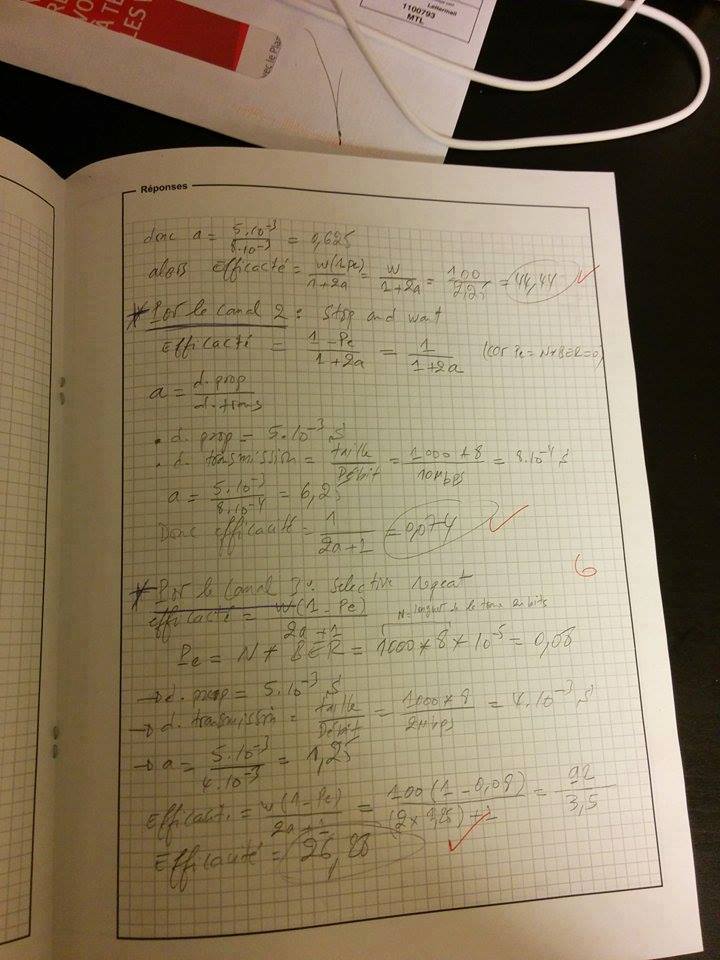 1100793
Lettermail
MTL
VO
À TE
LES
avec le Plan
Réponses
donc a = 5.10^-3 / 8.10^-3 = 0,625
alors Efficacité = w(1-Pe) / 1+2a = w / 1+2a = 100 / 2,25 = 44,44
* Por le canal 2 : Stop and wait
Efficacité = 1-Pe / 1+2a = 1 / 1+2a (car Pe = N*BER=0)
a = d. prop / d. trans
. d. prop = 5.10^-3 S
. d. transmission = taille / Débit = 1000*8 / 10Mbps = 8.10^-4 S
a = 5.10^-3 / 8.10^-4 = 6,25
Donc efficacité = 1 / 2a+1 = 0,074
6
* Por le Canal 3 : Selective repeat
efficacité = w(1-Pe) / 2a+1
N = longueur de la trame en bits
Pe = N * BER = 1000*8*10^-5 = 0,08
→ d. prop = 5.10^-3 S
→ d. transmission = taille / Débit = 1000*8 / 2Mbps = 4.10^-3 S
→ a = 5.10^-3 / 4.10^-3 = 1,25
Efficacit. = w(1-Pe) / 2a+1 = 100(1-0,08) / (2x1,25)+1 = 92 / 3,5
Efficacité = 26,28